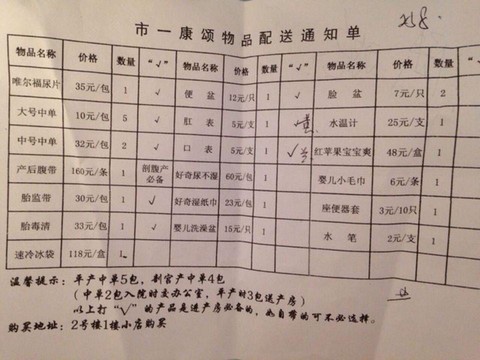 258
市一康颂物品配送通知单
物品名称 价格 数量 “√” 物品名称 价格 数量 “√” 物品名称 价格 数量
唯尔福尿片 35元/包 1 √ 便盆 12元/只 1 √ 脸盆 7元/只 2
大号中单 10元/包 5 √ 肛表 5元/支 1 水温计 25元/支 1
中号中单 32元/包 2 √ 口表 5元/支 1 √ 红苹果宝宝爽 48元/盒 1
产后腹带 160元/条 1 剖腹产必备 好奇尿不湿 60元/包 1 婴儿小毛巾 6元/条 1
胎监带 30元/包 1 √ 好奇湿纸巾 23元/包 1 座便器套 3元/10只 1
胎毒清 33元/包 1 √ 婴儿洗澡盆 15元/只 1 水笔 2元/支 1
速冷冰袋 118元/盒 1
温馨提示：平产中单5包，剖宫产中单4包
（中单2包入院时交办公室，平产时3包送产房）
以上打“√”的产品是进产房必备的，如自带的可不必选择。
购买地址：2号楼1楼小店购买